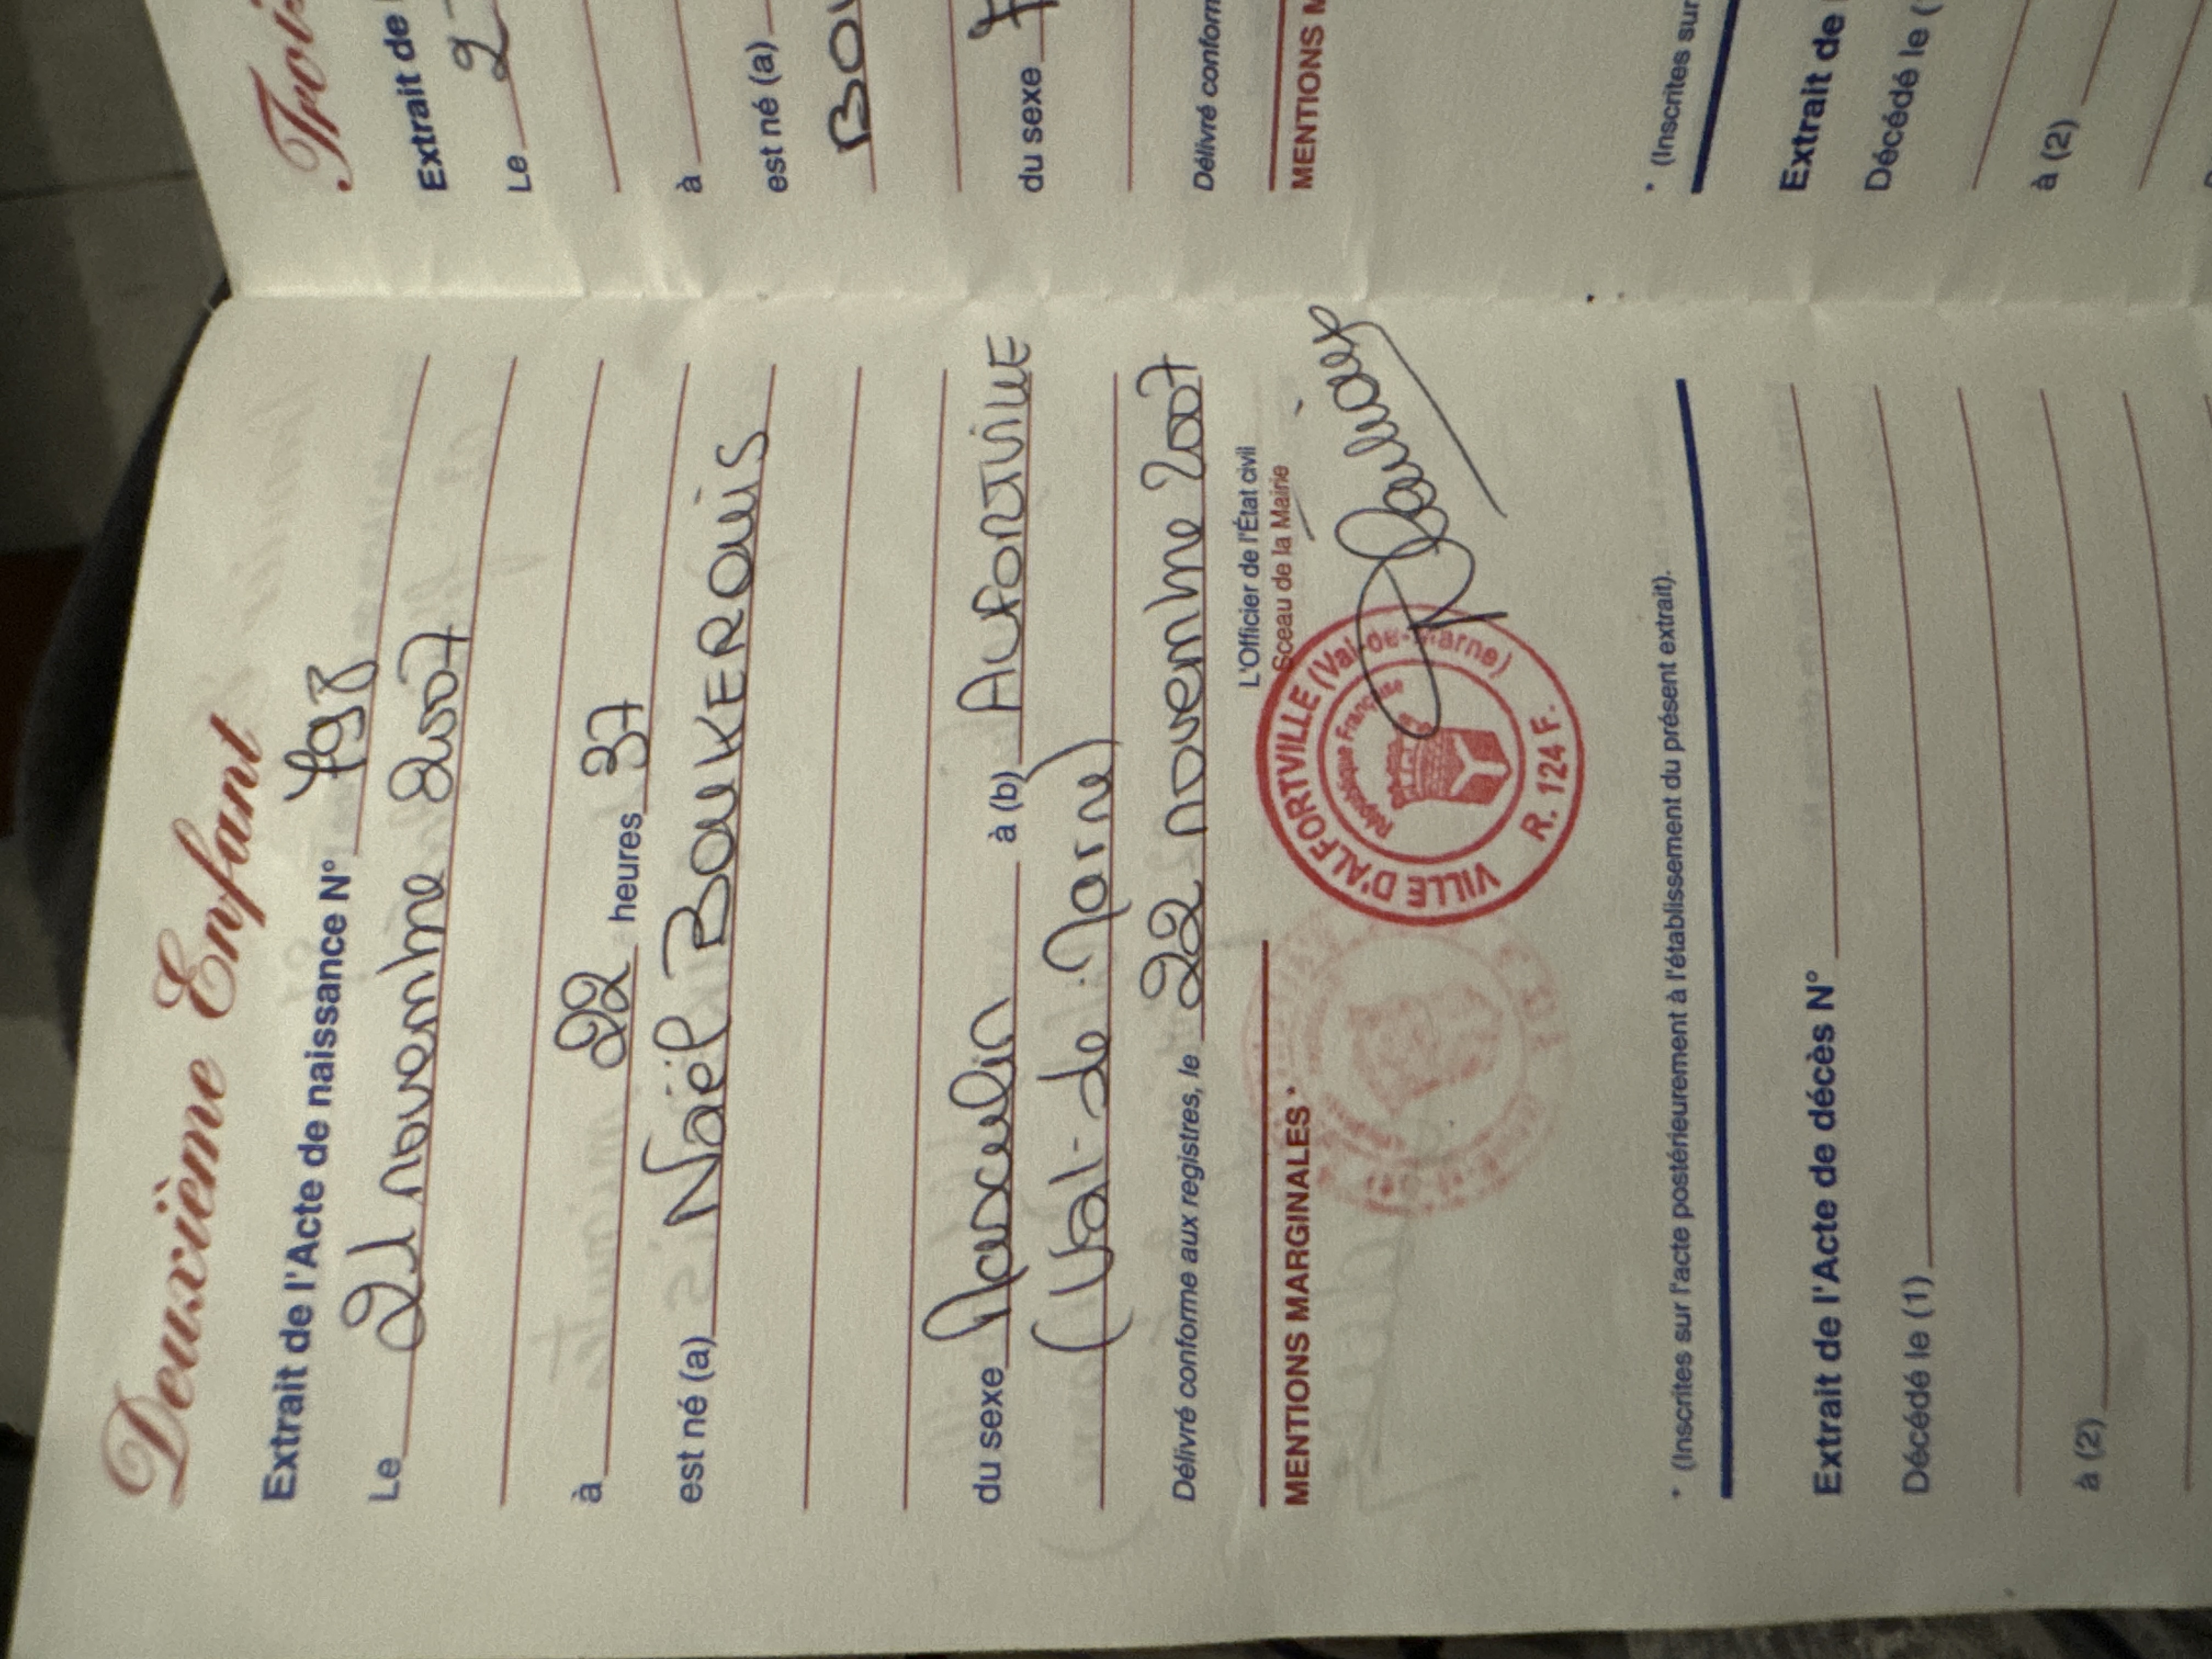 Deuxième Enfant
Extrait de l'Acte de naissance N° 798
Le 21 novembre 2007
à 22 heures 37
est né (a) Naël BOUKEROUIS
du sexe Masculin à (b) ALFORTVILLE
(Val-de-Marne)
Délivré conforme aux registres, le 22 novembre 2007
L'Officier de l'État civil
Sceau de la Mairie
MENTIONS MARGINALES *
VILLE D'ALFORTVILLE (Val-de-Marne)
République Française
R. 124 F.
* (Inscrites sur l'acte postérieurement à l'établissement du présent extrait).
Extrait de l'Acte de décès N°
Décédé le (1)
à (2)
Extrait de
Le 2
à
est né (a)
du sexe
Délivré
MENTIONS
* (Inscrites sur
Extrait de
Décédé le
à (2)